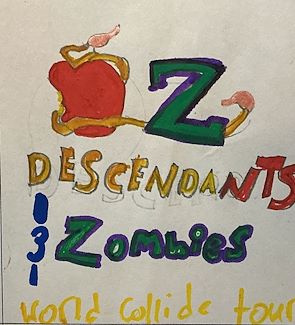 Z
DESCENDANTS
Zombies
world collide tour